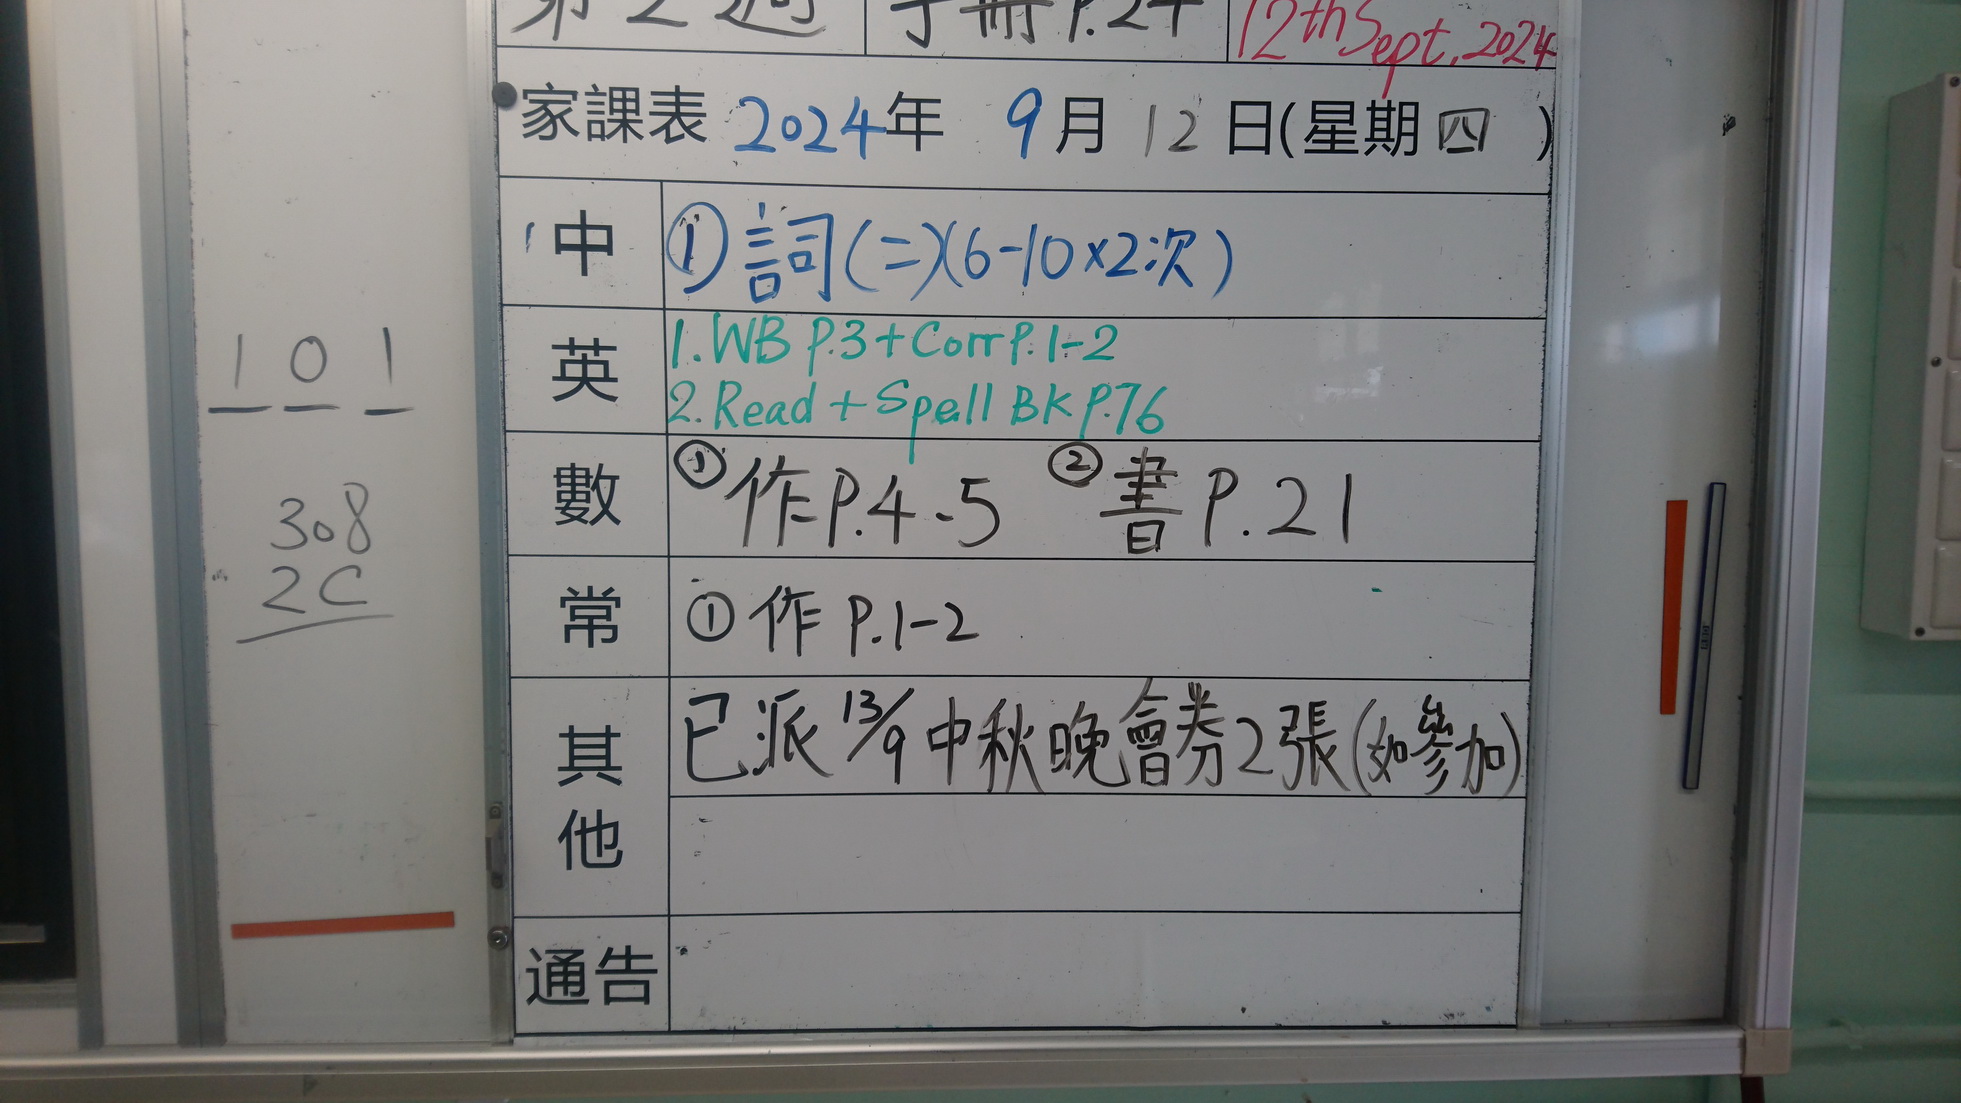 第2週 手冊P.24 12th Sept, 2024
家課表 2024年 9月 12日(星期四 )
中 ①詞(二)(6-10×2次)
英 1.WB P.3+Corr P.1-2
2.Read + Spell BK P.76
數 ①作P.4-5 ②書P.21
常 ①作 P.1-2
其他 已派 13/9 中秋晚會券2張(如參加)
通告
1 0 1
308
2C